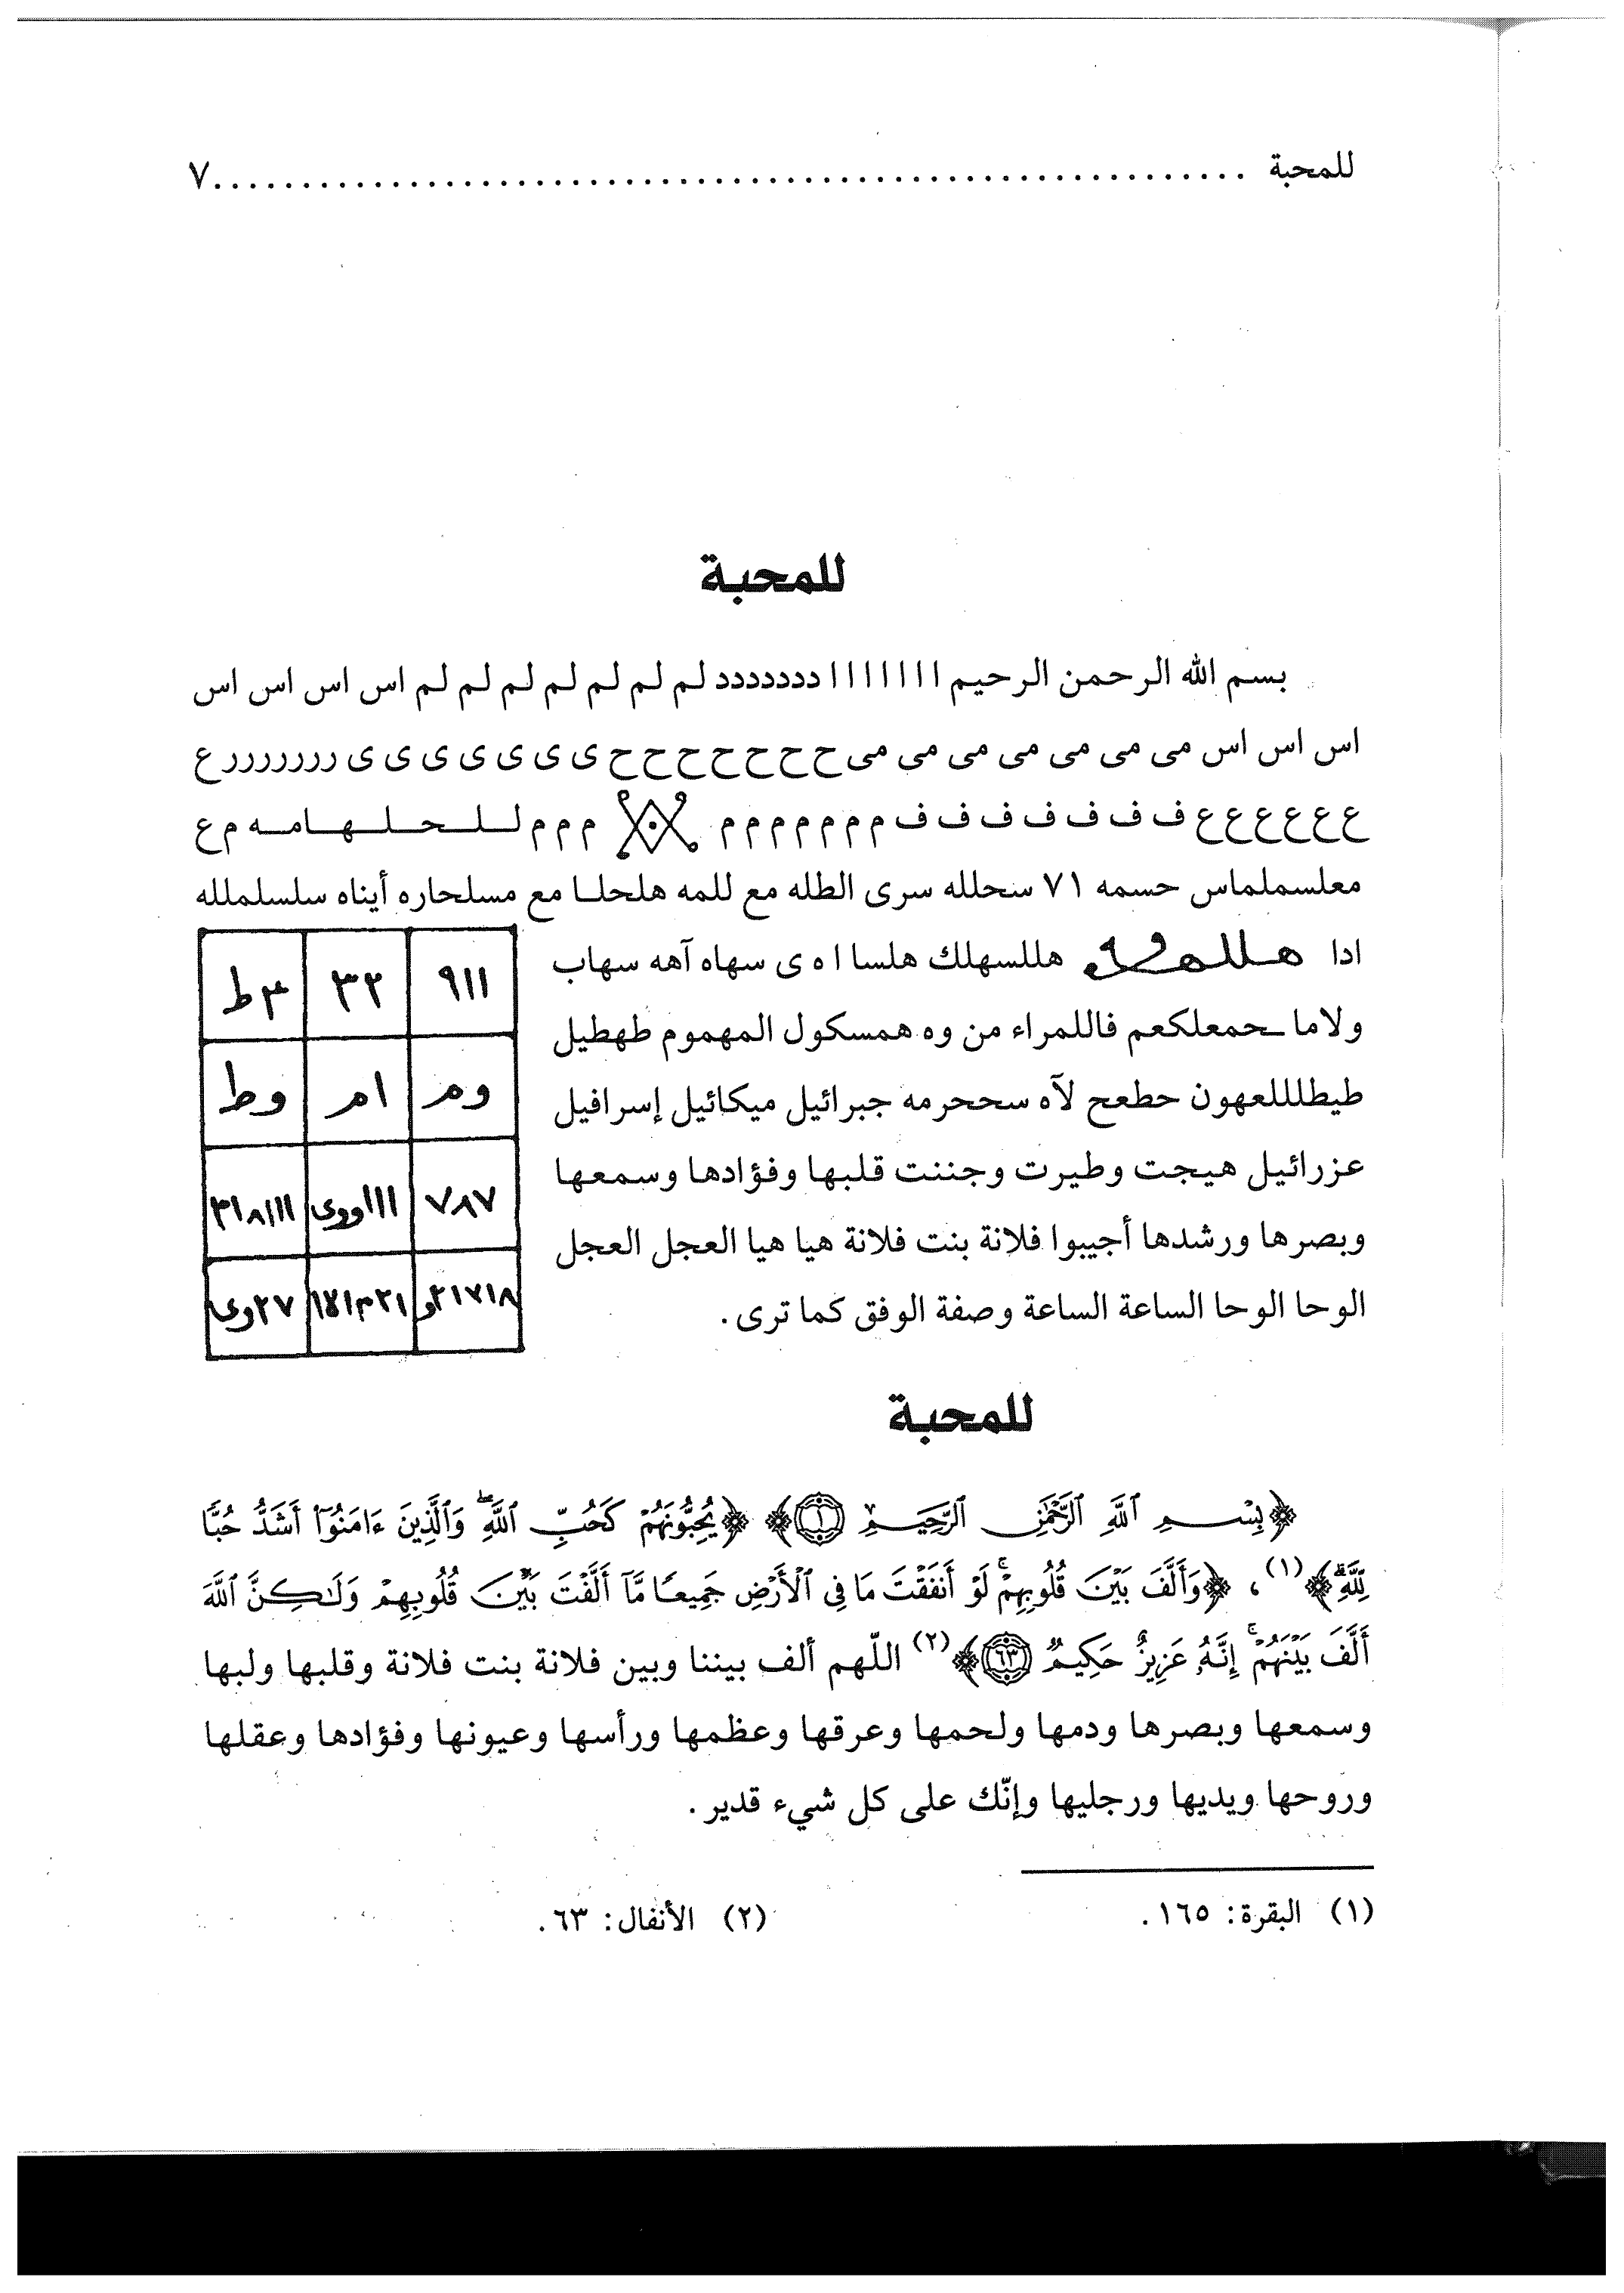 للمحبة ........................................................... ٧
للمحبة
بسم الله الرحمن الرحيم ا ا ا ا ا ا ا ددددددد لم لم لم لم لم لم لم اس اس اس اس
اس اس اس مى مى مى مى مى مى مى ح ح ح ح ح ح ح ى ى ى ى ى ى ى ررررررر ع
ع ع ع ع ع ع ف ف ف ف ف ف ف م م م م م م م م م م لـلـحـلـهـامـه م ع
معلسملماس حسمه ٧١ سحلله سرى الطله مع للمه هلحلـا مع مسلحاره أيناه سلسلملله
ادا هللسهلك هلسا ا ه ى سهاه آهه سهاب
ولاما حمعلكعم فاللمراء من وه همسكول المهموم طهطيل
طيطلللعهون حطعح لآه سححرمه جبرائيل ميكائيل إسرافيل
عزرائيل هيجت وطيرت وجننت قلبها وفؤادها وسمعها
وبصرها ورشدها أجيبوا فلانة بنت فلانة هيا هيا العجل العجل
الوحا الوحا الساعة الساعة وصفة الوفق كما ترى.
٩١١ ٣٢ ٣ط
وم ام وط
٧٨٧ ١١١ووى ٣١٨١١١
٢٧وى
للمحبة
﴿بِسْمِ ٱللَّهِ ٱلرَّحْمَٰنِ ٱلرَّحِيمِ ١﴾ ﴿يُحِبُّونَهُمْ كَحُبِّ ٱللَّهِۖ وَٱلَّذِينَ ءَامَنُوٓا۟ أَشَدُّ حُبًّا
لِّلَّهِۗ﴾(١)، ﴿وَأَلَّفَ بَيْنَ قُلُوبِهِمْۚ لَوْ أَنفَقْتَ مَا فِى ٱلْأَرْضِ جَمِيعًا مَّآ أَلَّفْتَ بَيْنَ قُلُوبِهِمْ وَلَٰكِنَّ ٱللَّهَ
أَلَّفَ بَيْنَهُمْۚ إِنَّهُۥ عَزِيزٌ حَكِيمٌ ٦٣﴾(٢) اللّهم ألف بيننا وبين فلانة بنت فلانة وقلبها ولبها
وسمعها وبصرها ودمها ولحمها وعرقها وعظمها ورأسها وعيونها وفؤادها وعقلها
وروحها ويديها ورجليها وإنّك على كل شيء قدير.
(١) البقرة: ١٦٥. (٢) الأنفال: ٦٣.